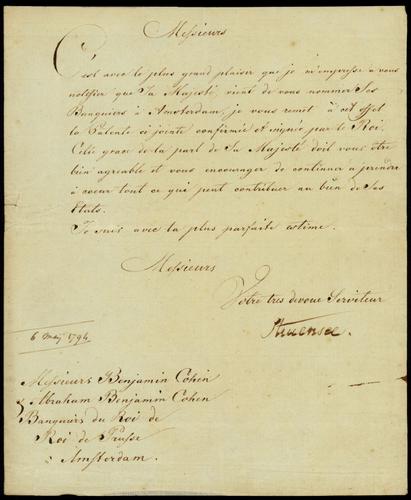 Messieurs
C'est avec le plus grand plaisir que je m'empresse à vous
notifier que Sa Majesté vient de vous nommer Ses
Banquiers à Amsterdam, je vous remet à cet effet
la Patente ci jointe confirmée et signée par le Roi.
Cette grace de la part de Sa Majesté doit vous etre
bien agreable et vous encourager de continuer à prendre
à coeur tout ce qui peut contribuer au bien de Ses
Etats.
Je suis avec la plus parfaite estime.
Messieurs
Votre tres devoué Serviteur
Struensee.
6 May 1794
Messieurs Benjamin Cohen
& Abraham Benjamin Cohen
Banquiers du Roi de
Roi de Prusse
à Amsterdam.